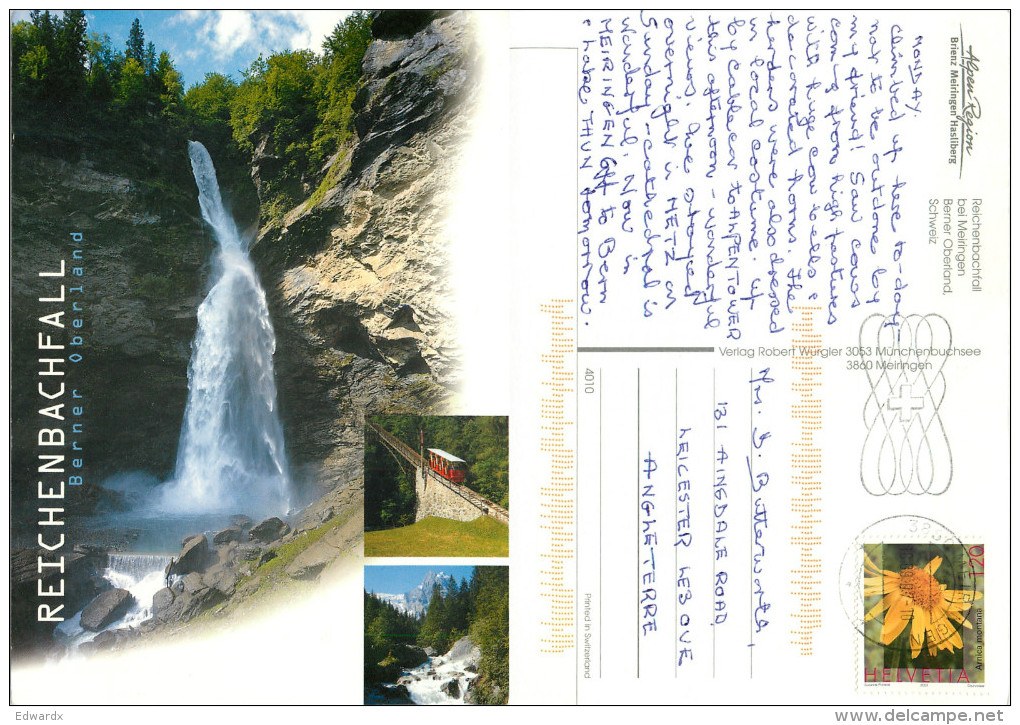 REICHENBACHFALL
Berner Oberland
Alpen Region
Brienz Meiringen Hasliberg
Reichenbachfall
bei Meiringen
Berner Oberland,
Schweiz
MONDAY.
Climbed up here to-day -
not to be outdone by
my friend! Saw cows
com-g from high pastures
with huge cow bells &
decorated horns. The
herders were also dressed
in local costume. Up
by cablecar to ALPEN TOWER
this afternoon - wonderful
views. We stayed
overnight in METZ on
Sunday - cathedral is
wonderful. Now in
MEIRINGEN. Off to Bern
& Lake THUN tomorrow.
Verlag Robert Würgler 3053 Münchenbuchsee
3860 Meiringen
4010
Printed in Switzerland
Mrs. B. Butterworth,
131 AINGDALE ROAD,
LEICESTER LE3 0VE
ANGLETERRE
HELVETIA
Arnica montana
Edwardx
www.delcampe.net